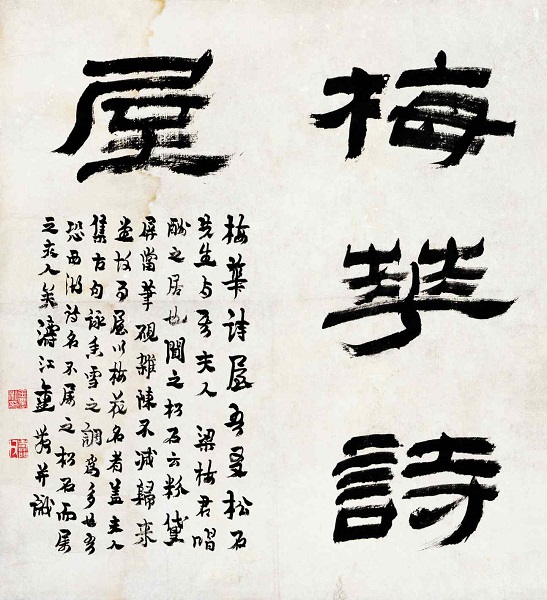 梅華詩
屋
梅華詩屋吾 松石
先生与 夫人梁梅君唱
酬之居也聞之松石云粉黛
屏當筆硯雜陳不減歸來
故 屋以梅花名者蓋夫人
集古句詠香雪之調為多也吾
恐西湖詩名不屬之松石而屬
之夫人矣濤江童 并識